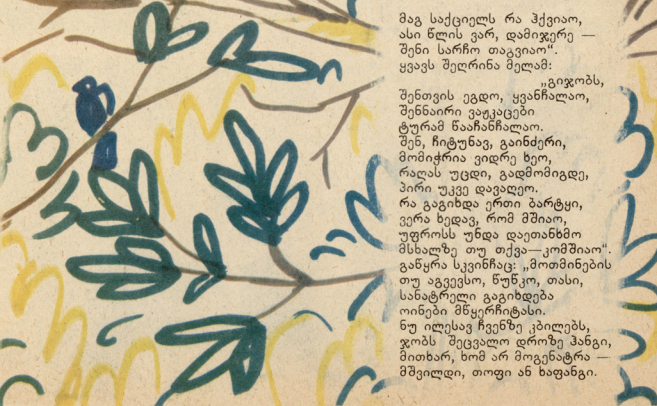 მაგ საქციელს რა ჰქვიაო,
ასი წლის ვარ, დამიჯერე —
შენი სარჩო თაგვიაო“.
ყვავს შეღრინა მელამ:
„გიჯობს,
შენთვის ეგდო, ყვანჩალაო,
შენნაირი ვაჟკაცები
ტურამ წააჩანჩალაო.
შენ, ჩიტუნავ, გაინძერი,
მომიჭრია ვიდრე ხეო,
რაღას უცდი, გადმომიგდე,
პირი უკვე დავაღეო.
რა გაგიხდა ერთი ბარტყი,
ვერა ხედავ, რომ მშიაო,
უფროსს უნდა დაეთანხმო
მსხალზე თუ თქვა—კომშიაო“.
გაწყრა სკვინჩაც: „მოთმინების
თუ აგვევსო, წუწკო, თასი,
სანატრელი გაგიხდება
ოინები მწყერჩიტასი.
ნუ ილესავ ჩვენზე კბილებს,
ჯობს შეცვალო დროზე ჰანგი,
მითხარ, ხომ არ მოგენატრა —
მშვილდი, თოფი ან ხაფანგი.